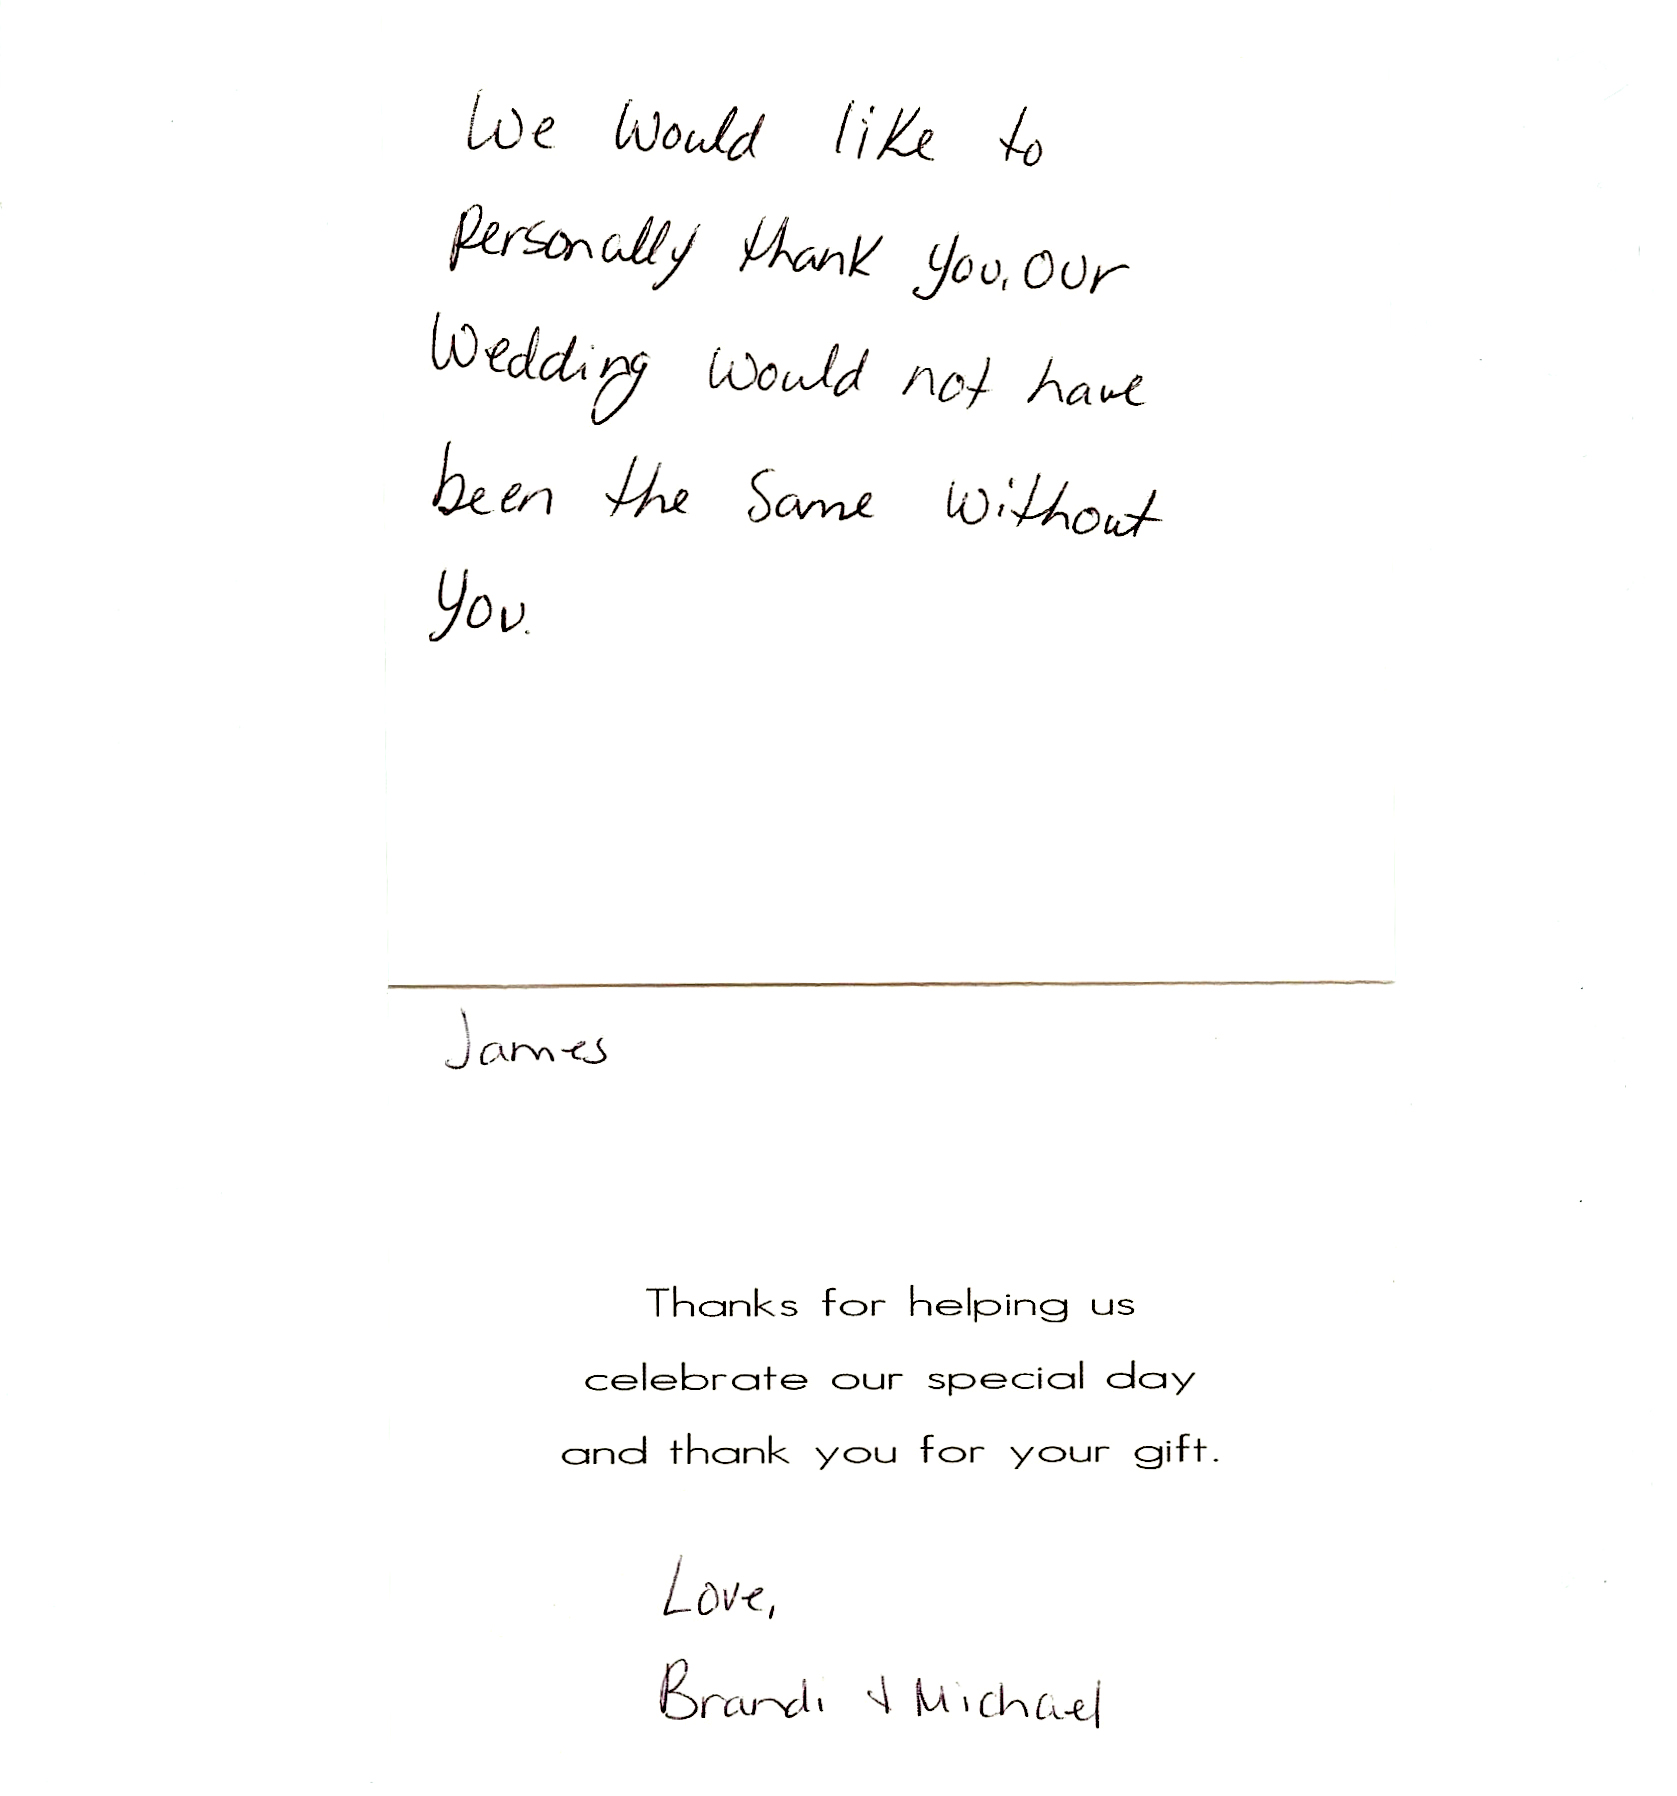 We Would like to
Personally thank you. Our
Wedding Would not have
been the Same Without
You.
James
Thanks for helping us
celebrate our special day
and thank you for your gift.
Love,
Brandi & Michael